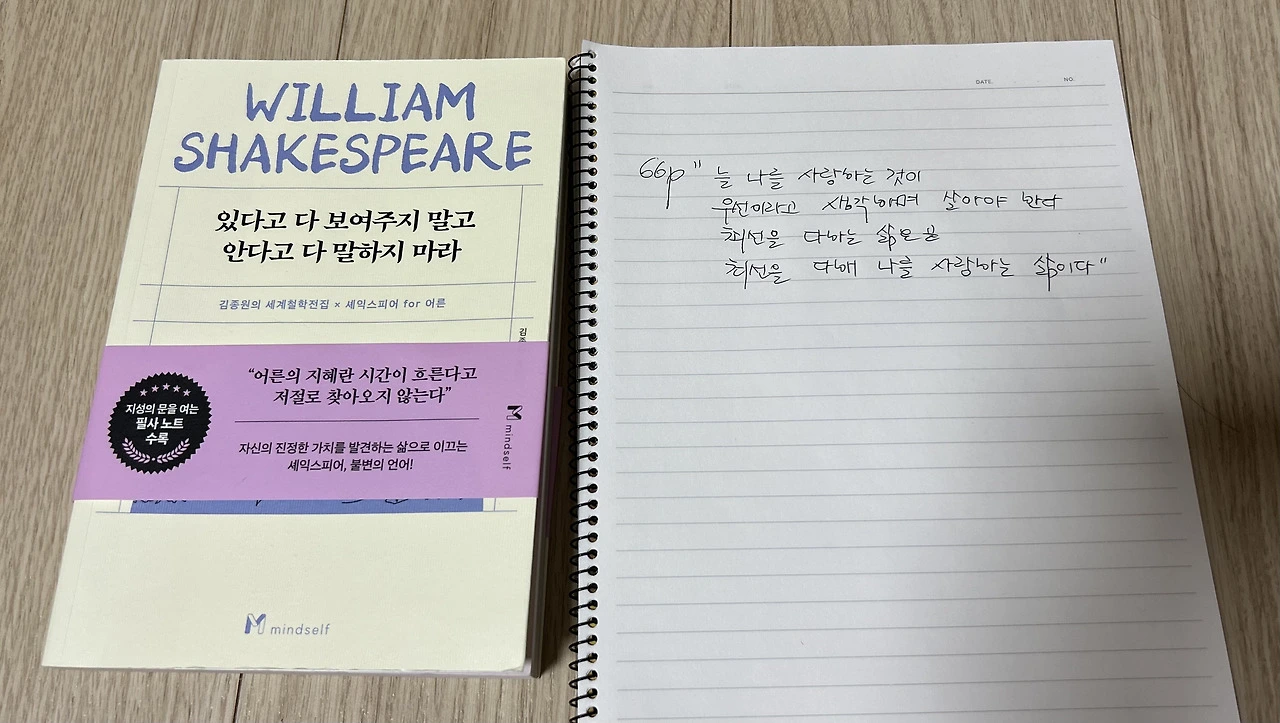 WILLIAM
SHAKESPEARE
있다고 다 보여주지 말고
안다고 다 말하지 마라
김종원의 세계철학전집 × 셰익스피어 for 어른
“어른의 지혜란 시간이 흐른다고
저절로 찾아오지 않는다”
지성의 문을 여는
필사 노트
수록
자신의 진정한 가치를 발견하는 삶으로 이끄는
셰익스피어, 불변의 언어!
mindself
mindself
DATE. NO.
66p " 늘 나를 사랑하는 것이
우선이라고 생각하며 살아야 한다
최선을 다하는 삶은 곧
최선을 다해 나를 사랑하는 삶이다"